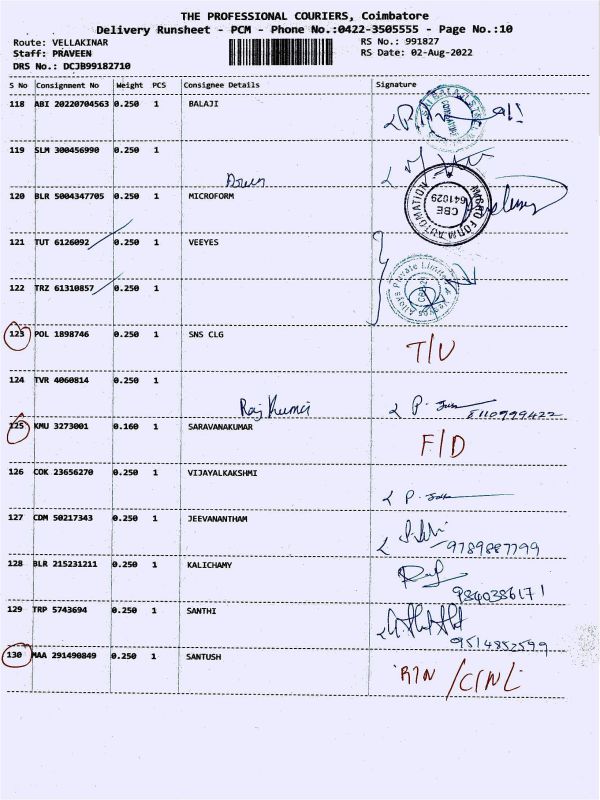 THE PROFESSIONAL COURIERS, Coimbatore
Delivery Runsheet - PCM - Phone No.:0422-3505555 - Page No.:10
Route: VELLAKINAR RS No.: 991827
Staff: PRAVEEN RS Date: 02-Aug-2022
DRS No.: DCJB99182710
S No Consignment No Weight PCS Consignee Details Signature
118 ABI 20220704563 0.250 1 BALAJI
119 SLM 300456990 0.250 1
120 BLR 5004347705 0.250 1 MICROFORM
MICRO FORM AUTOMATION CBE 641029
121 TUT 6126092 0.250 1 VEEYES
122 TRZ 61310857 0.250 1
Alloys Private Limited
123 POL 1898746 0.250 1 SNS CLG T/U
124 TVR 4060814 0.250 1
Raj Kumar P. 8110799422
125 KMU 3273001 0.160 1 SARAVANAKUMAR F/D
126 COK 23656270 0.250 1 VIJAYALKAKSHMI
P.
127 CDM 50217343 0.250 1 JEEVANANTHAM
9789887799
128 BLR 215231211 0.250 1 KALICHAMY
9840386171
129 TRP 5743694 0.250 1 SANTHI
9514852599
130 MAA 291490849 0.250 1 SANTUSH